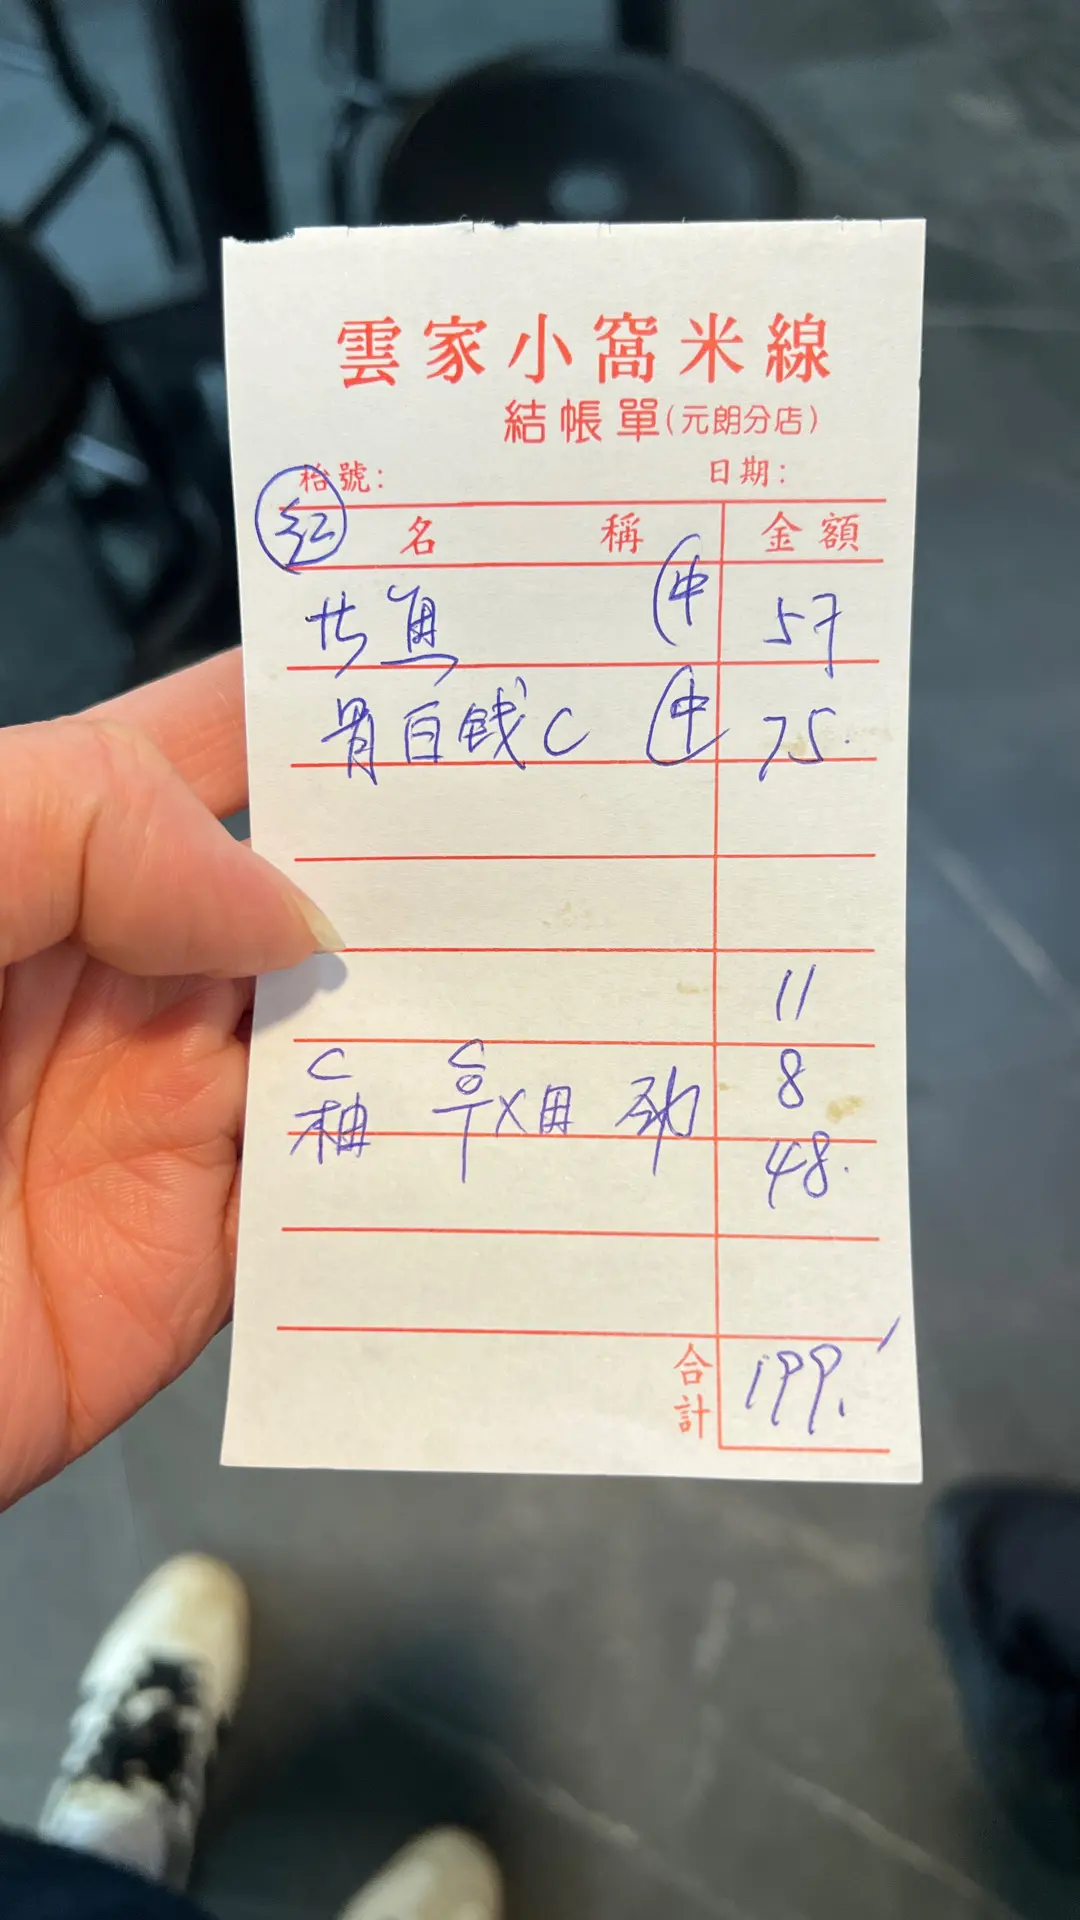 雲家小窩米線
結帳單(元朗分店)
枱號: 日期:
紅
名稱 金額
中 57
骨白钱C 中 75.
11
C C 8
柚 48.
合計 199.